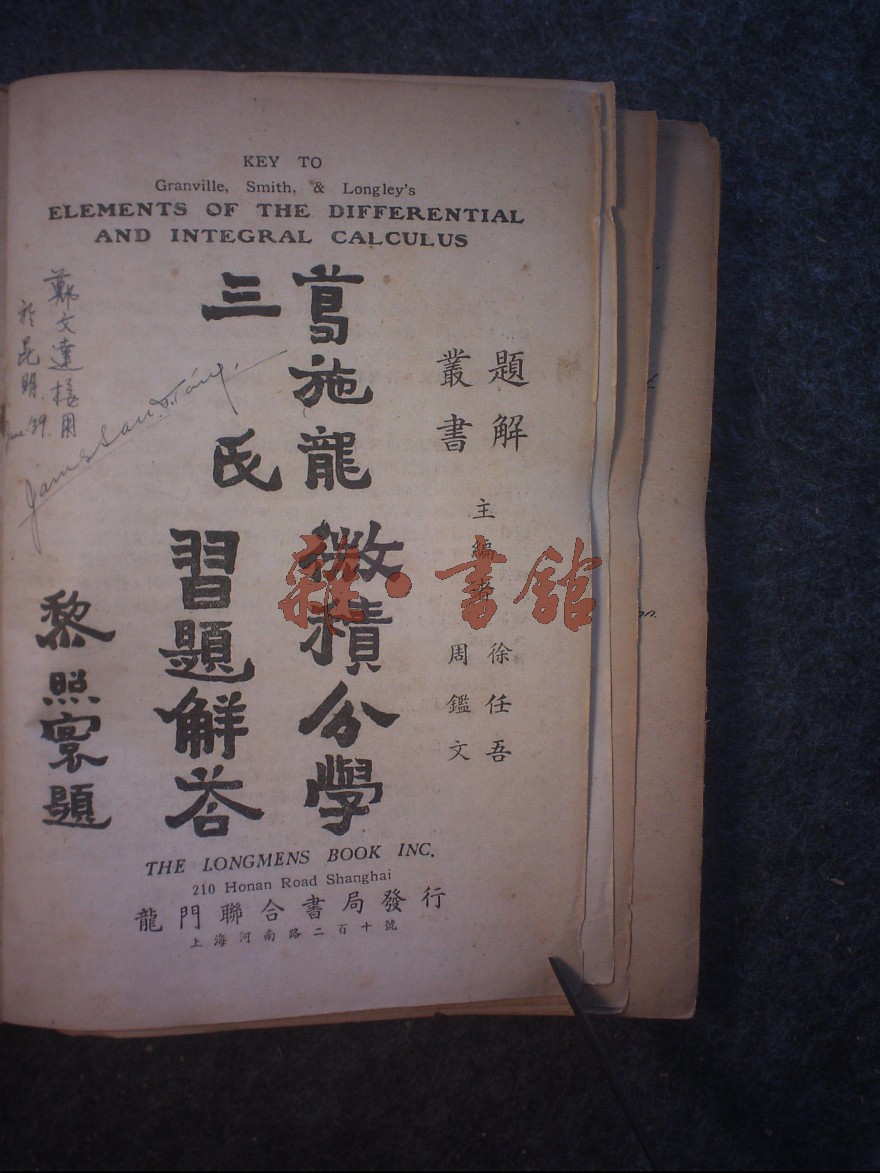 KEY TO
Granville, Smith, & Longley's
ELEMENTS OF THE DIFFERENTIAL
AND INTEGRAL CALCULUS
題解
叢書
主編者
徐任吾
周鑑文
葛施龍
三氏
微積分學
習題解答
黎照寰題
鄭文達
於昆明
THE LONGMENS BOOK INC.
210 Honan Road Shanghai
龍門聯合書局發行
上海河南路二百十號
雜·書館